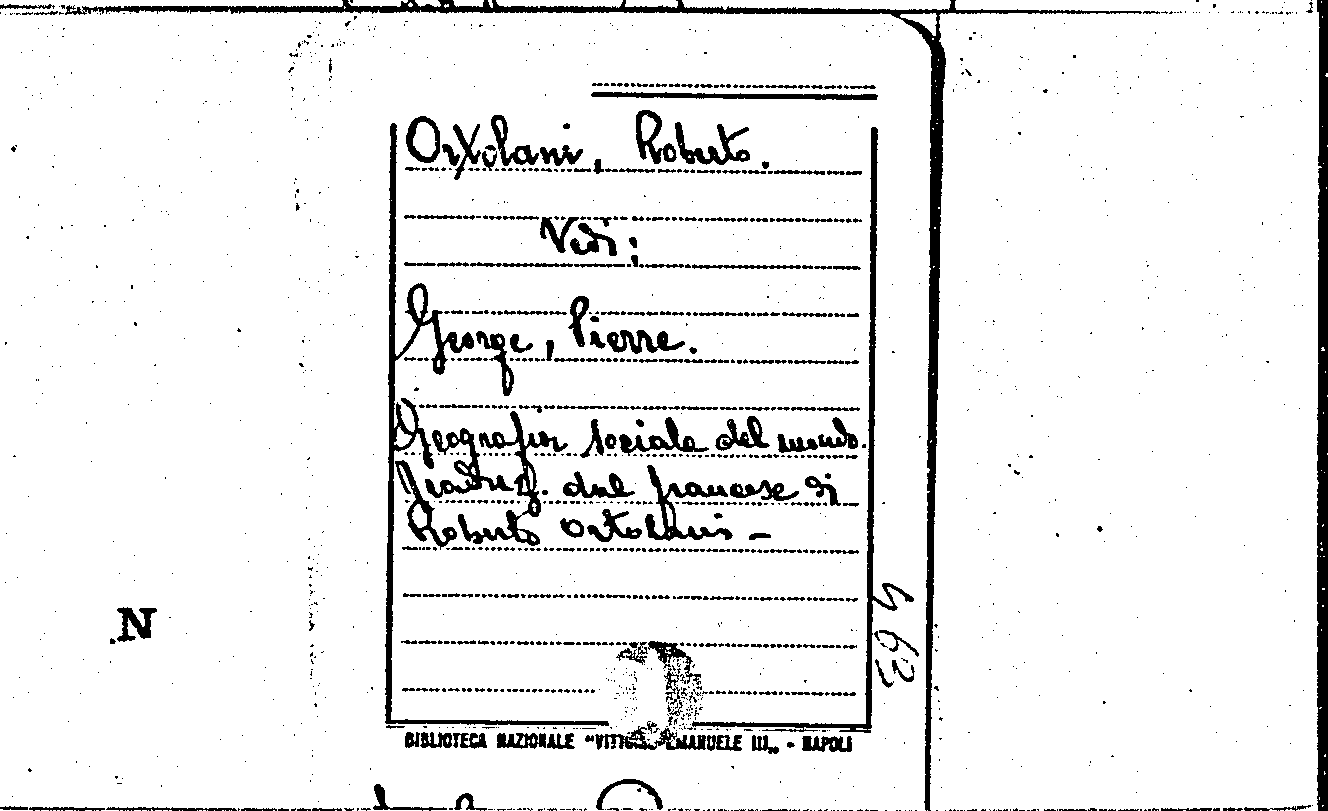 Ortolani, Roberto.
Vedi:
George, Pierre.
Geografia sociale del mondo.
Traduz. dal francese di
Roberto Ortolani -
4 63
N
BIBLIOTECA NAZIONALE "VITTORIO EMANUELE III„ - NAPOLI